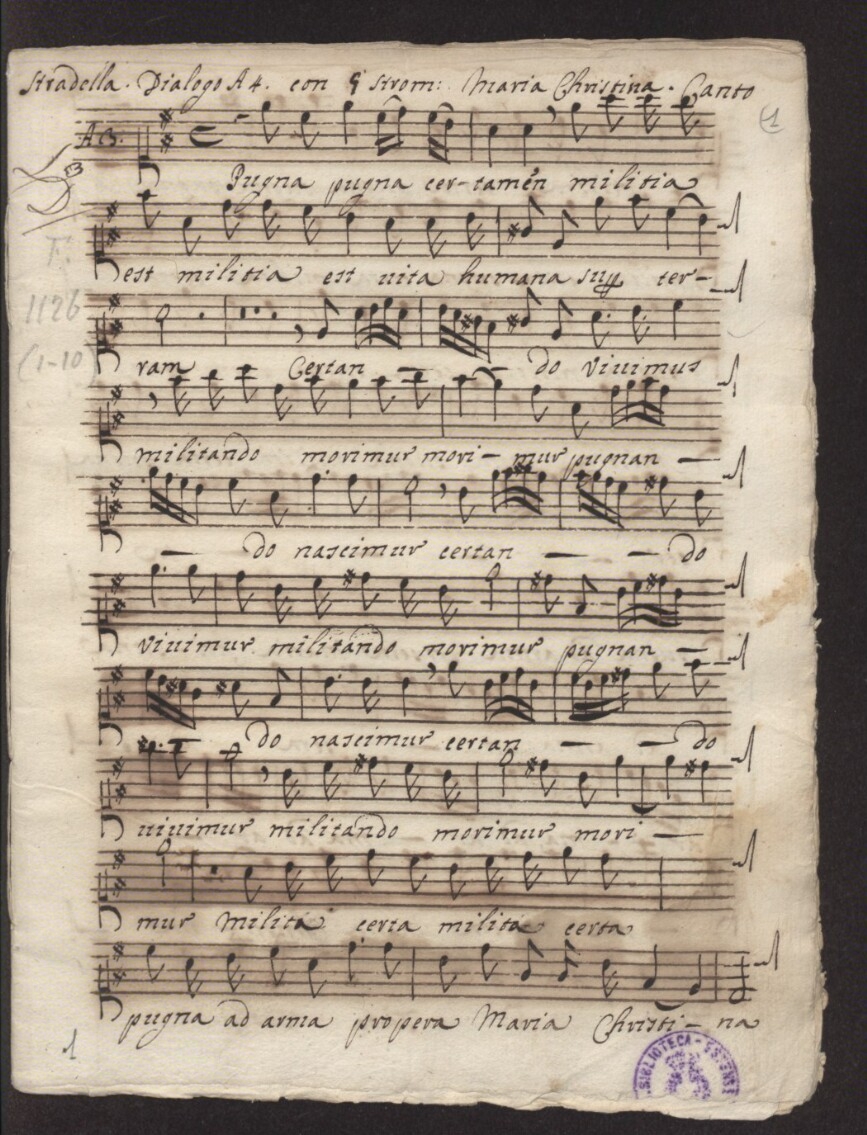 Stradella. Dialogo A 4. con 5 strom: Maria Christina. Canto
1
A 3.
Pugna pugna cer-tamen militia
est militia est uita humana sup ter-
F.
1126
(1-10)
ram Certan - - do Viuimus
militando morimur mori- mur pugnan -
- do nascimur certan - - do
viuimur militando morimur pugnan -
do nascimur certan - - do
uiuimur militando morimur mori -
mur Milita certa milita certa
pugna ad arma propera Maria Christi-na
1
BIBLIOTECA - ESTENSE